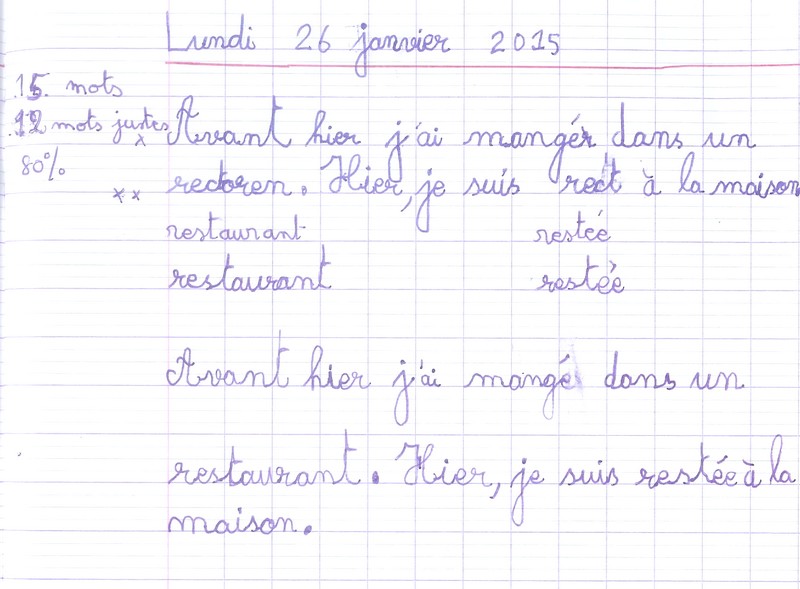 Lundi 26 janvier 2015
15 mots
12 mots justes
80%
Avant hier j'ai mangér dans un
x
rectoren. Hier, je suis rect à la maison
x x
restaurant restée
restaurant restée
Avant hier j'ai mangé dans un
restaurant. Hier, je suis restée à la
maison.